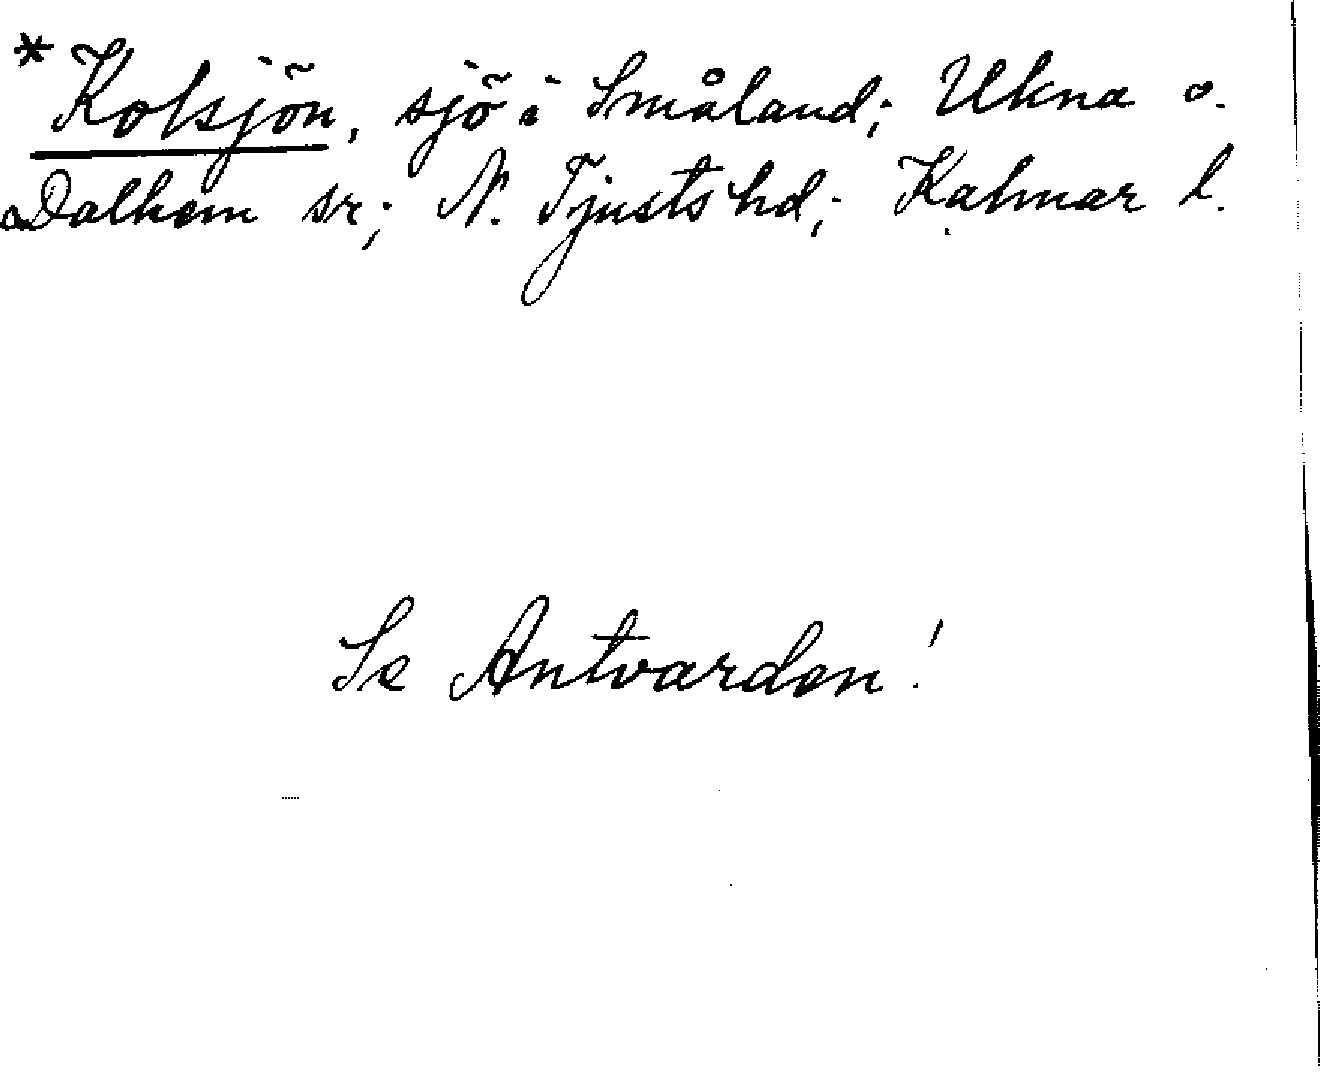 * Kolsjön, sjö i Småland; Ukna o.
Dalhem sr; N. Tjusts hd; Kalmar l.
Se Antvarden!